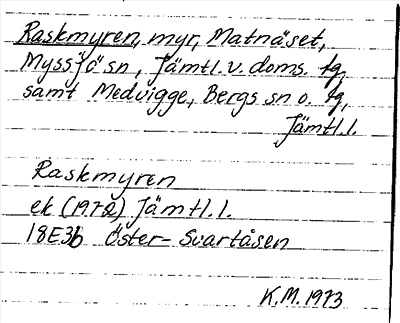 Raskmyren, myr, Matnäset,
Myssjö sn, Jämtl.v.doms. tg,
samt Medvigge, Bergs sn o. tg,
Jämtl.l.
Raskmyren
ek (1972) Jämtl.l.
18E3b Öster-Svartåsen
K.M. 1973